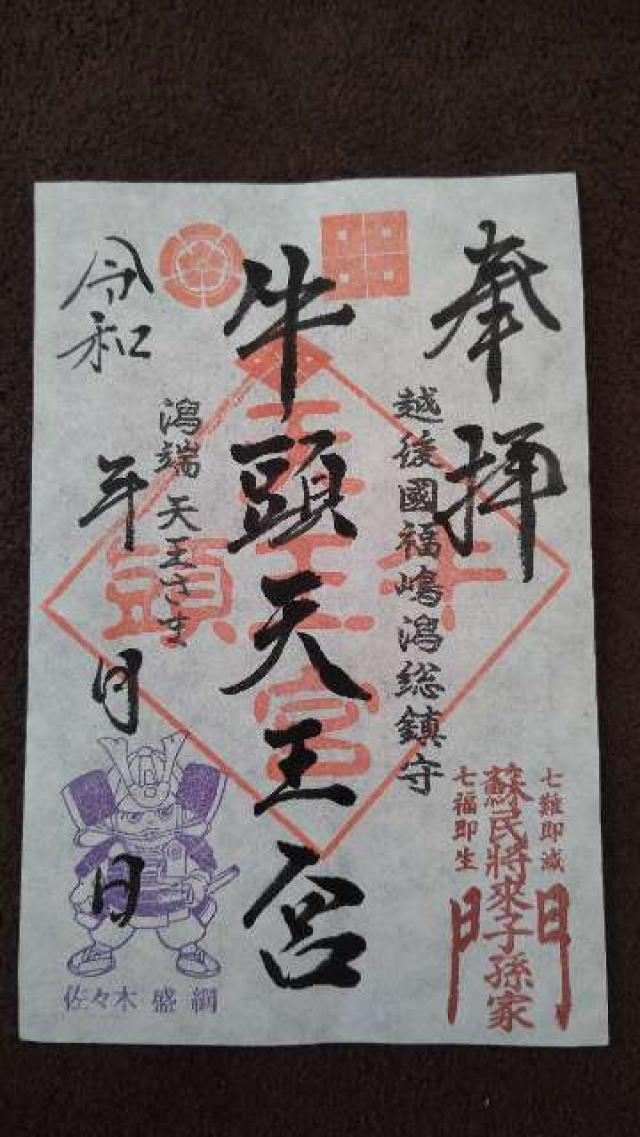 奉拝
越後國福嶋潟総鎮守
七難即滅
蘇民將來子孫家
門
七福即生
牛頭天王宮
牛頭天王宮
潟端 天王さま
令和 年 月 日
佐々木 盛綱